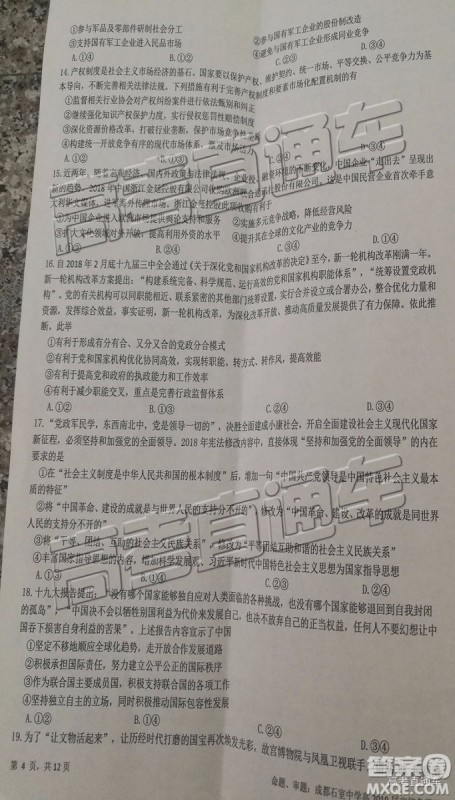 ①参与军品及零部件研制社会分工
②参与国有军工企业的股份制改造
③支持国有军工企业进入民品市场
④避免与国有军工企业形成同业竞争
A.①④ B.①② C.②③ D.③④
14.产权制度是社会主义市场经济的基石。国家要以保护产权、维护契约、统一市场、平等交换、公平竞争为基
本导向,不断完善相关法律法规。下列措施有利于完善产权制度和要素市场化配置机制的有
①监督相关行业协会对产权纠纷案件进行依法甄别和纠正
②继续强化知识产权保护力度,实行侵权惩罚性赔偿
③深化资源价格改革,打破行业垄断,保护市场竞争
④构建统一开放竞争有序的现代市场体系,激发市场活力
A.①② B.①④
15.近两年,
新的趋势。2018年
①为中国企业进入欧洲市场提供舆论支持和服务
②实施多元竞争战略,降低生产成本
③扩大文化领域对外开放,提高利用外资的水平
④提升其在全球的文化产业的竞争力
A.①② B.①④ C.②③
16.自2018年2月底十九届三中全会通过《关于深化党和国家机构改革的决定》至今,新一轮机构改革刚满一年。
新一轮机构改革方案提出:“构建系统完备、科学规范、运行高效的党和国家机构职能体系”,“统筹设置党政机
构”,党的有关机构可以同职能相近、联系紧密的其他部门统筹设置,实行合并设立或合署办公,整合优化力量和
资源,发挥综合效益,事实证明,新一轮机构改革,为深化改革开放、推动高质量发展提供了有力保障。依此推
断,此举
①有利于形成有分有合、又分又合的党政分合模式
②有利于党和国家机构优化协同高效,实现转职能、转方式、转作风,提高效能
③有利于提高党和政府的执政能力和工作效率
④有利于减少职能交叉,重点是完善行政监督体系
A.①② B.①④ C.②③ D.③④
17.“党政军民学,东西南北中,党是领导一切的”,决胜全面建成小康社会,开启全面建设社会主义现代化国家
新征程,必须坚持和加强党的全面领导。2018年宪法修改内容中,直接体现“坚持和加强党的全面领导”的内在
要求的是
①在“社会主义制度是中华人民共和国的根本制度”后,增加一句“中国共产党领导是中国特色社会主义最本
质的特征”
②将“中国革命、建设的成就是与世界人民的支持分不开的”修改为“中国革命、建设、改革的成就是同世界
人民的支持分不开的”
③将“平等、团结、互助的社会主义民族关系”修改为“平等团结互助和谐的社会主义民族关系”
④丰富国家指导思想的内容,增写科学发展观、习近平新时代中国特色社会主义思想为国家指导思想
A.①② B.①④ C.②③ D.③④
18.十九大报告提出:“没有哪个国家能够独自应对人类面临的各种挑战,也没有哪个国家能够退回到自我封闭
的孤岛”,“中国决不会以牺牲别国利益为代价来发展自己,也决不放弃自己的正当权益,任何人不要幻想让中
国吞下损害自身利益的苦果”。上述报告内容宣示了中国
①坚定不移地顺应全球化趋势,走开放发展道路
②积极承担国际责任,努力建立公平公正的国际秩序
③作为联合国主要成员国,积极支持联合国的各项工作
④坚持独立自主的立场,同时积极推动国际包容性发展
A.①② B.①④ C.②③ D.③④
19.为了“让文物活起来”,让历经时代打磨的国宝再次焕发光彩,故宫博物院与凤凰卫视联手
第4页,共12页
命题、审题:成都石室中学高2019
高考直通车
高考直通车
答案圈